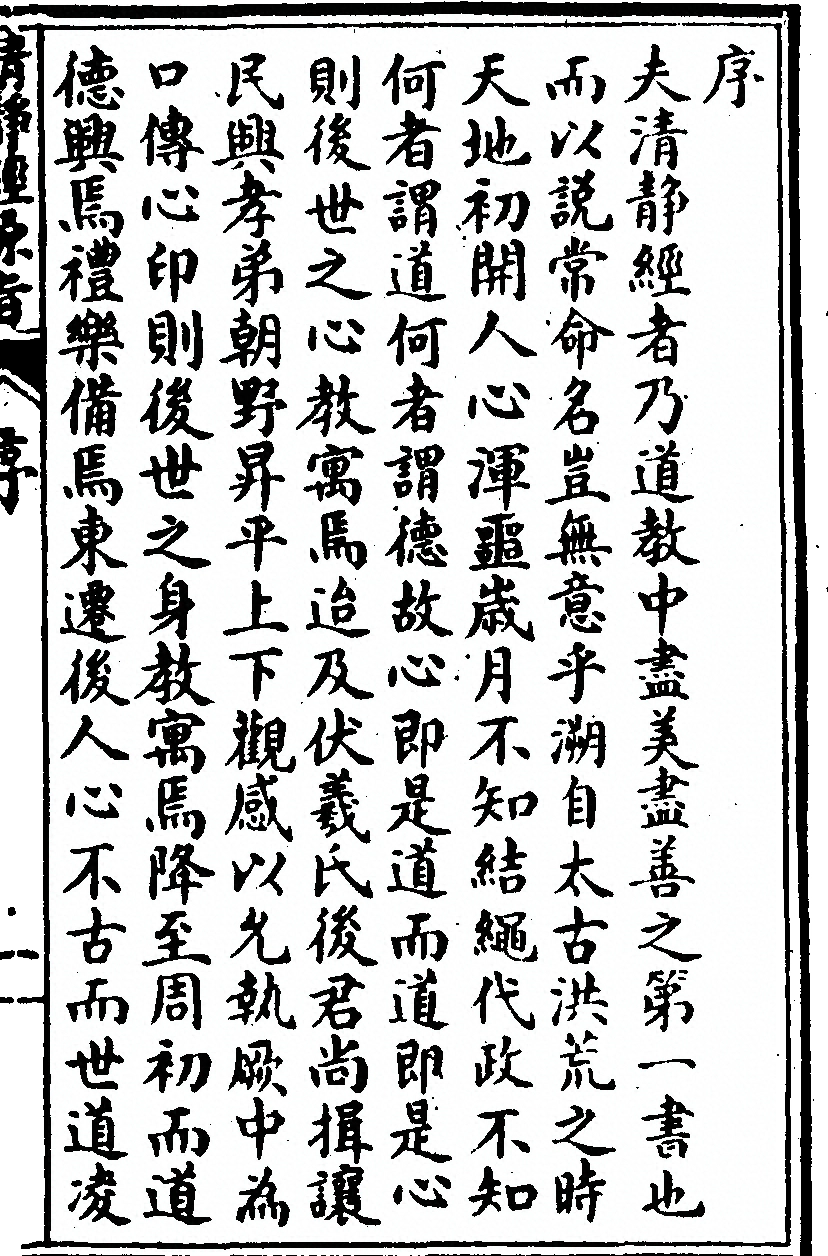 序
夫清靜經者乃道教中盡美盡善之第一書也
而以說常命名豈無意乎溯自太古洪荒之時
天地初開人心渾噩歲月不知結繩代政不知
何者謂道何者謂德故心即是道而道即是心
則後世之心教寓焉迨及伏羲氏後君尚揖讓
民興孝弟朝野昇平上下觀感以允執厥中為
口傳心印則後世之身教寓焉降至周初而道
德興焉禮樂備焉東遷後人心不古而世道凌
清靜經原旨
序